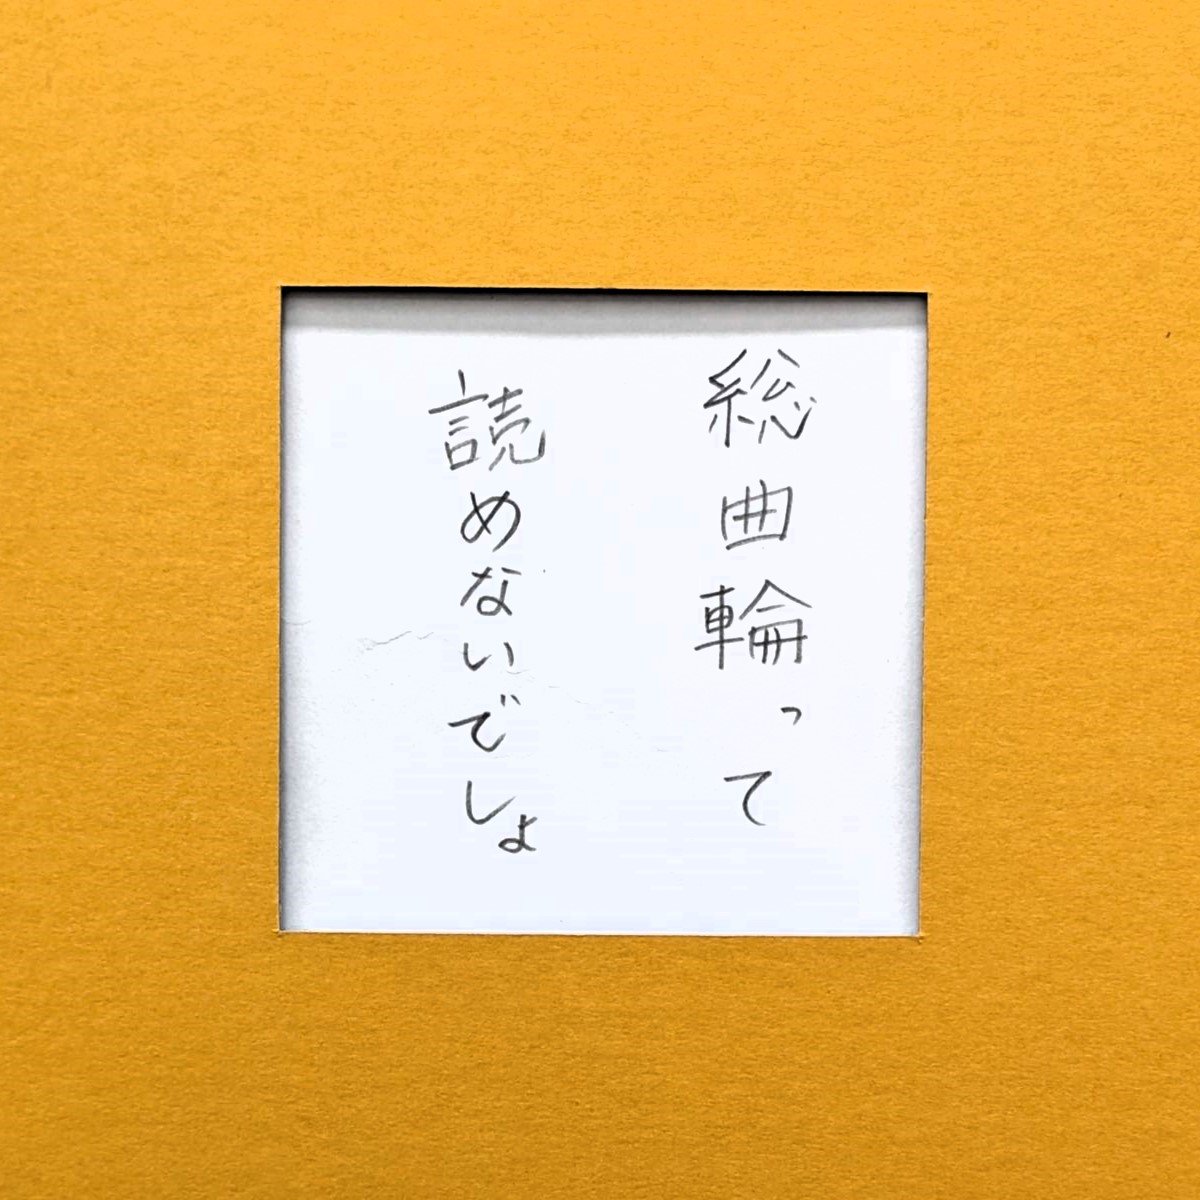 総曲輪って
読めないでしょ